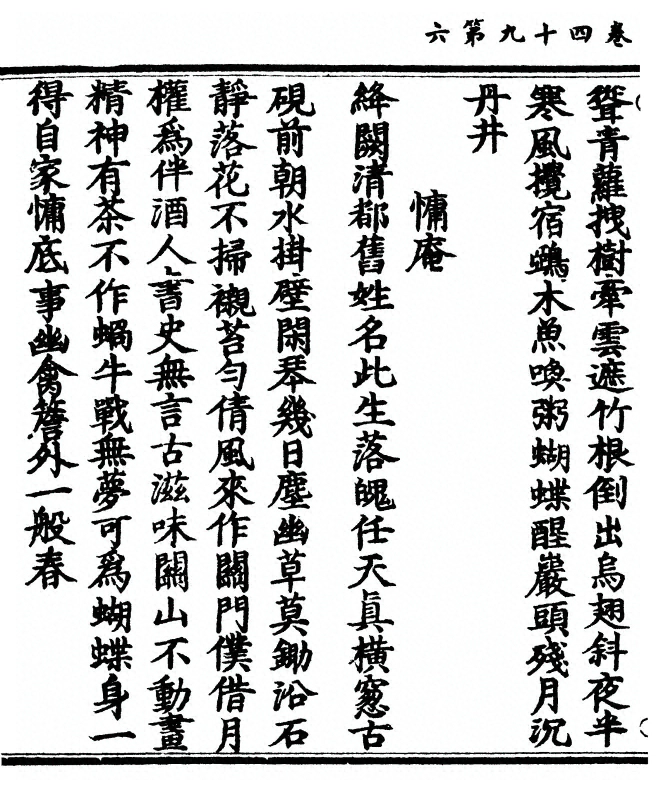 卷四十九第六
聳青蘿拽樹牽雲遮竹根倒出烏翅斜夜半
寒風攪宿鴉木魚喚粥蝴蝶醒巖頭殘月沉
丹井
慵庵
絳闕清都舊姓名此生落魄任天眞橫窓古
硯前朝水掛壁閑琴幾日塵幽草莫鋤沿石
靜落花不掃襯苔勻倩風來作關門僕借月
權爲伴酒人書史無言古滋味關山不動畫
精神有茶不作蝸牛戰無夢可爲蝴蝶身一
得自家慵底事幽禽簷外一般春